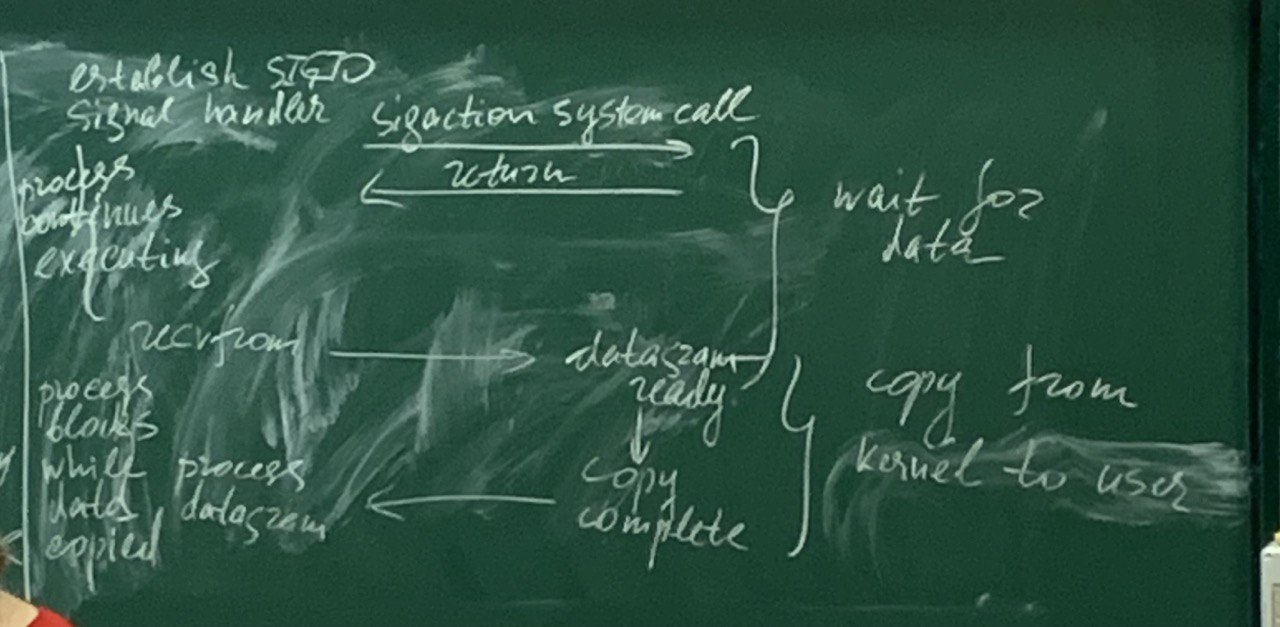 establish SIGIO
signal handler
sigaction system call
return
process
continues
executing
wait for
data
recvfrom
datagram
ready
process
blocks
while process
data datagram
copied
copy
complete
copy from
kernel to user